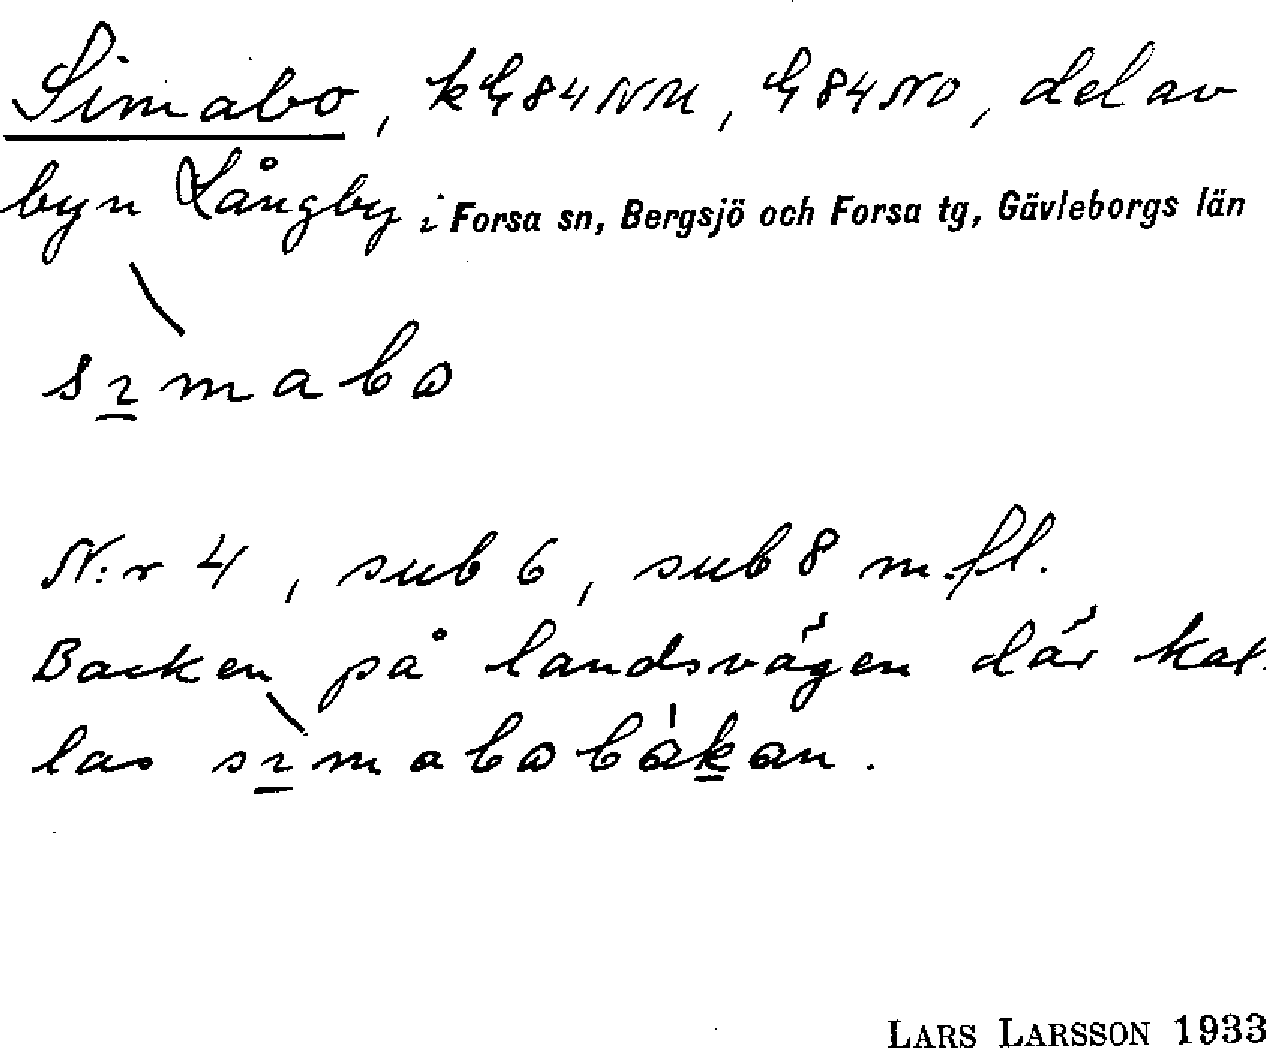 Simabo, kG84NM, G84NO, del av
byn Långby i Forsa sn, Bergsjö och Forsa tg, Gävleborgs län
sımabo
N:r 4, sub 6, sub 8 m.fl.
Backen på landsvägen där kal-
las sımabobakan.
LARS LARSSON 1933